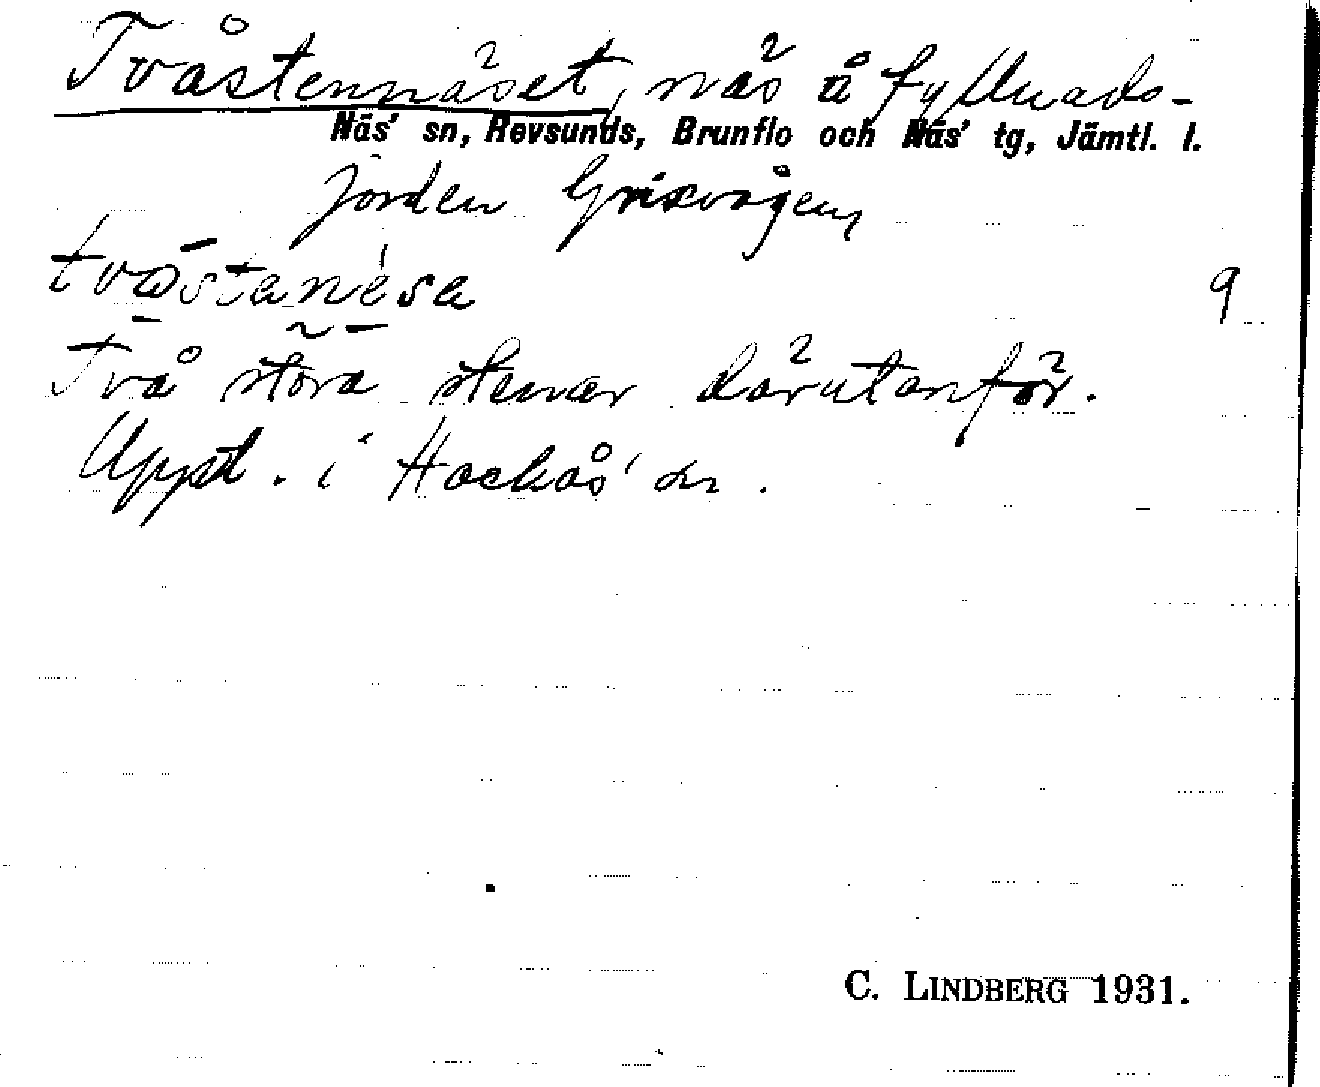 Tvåstennäset, näs å fyllnads-
Näs' sn, Revsunds, Brunflo och Näs' tg, Jämtl. l.
jorden Grisvågen,
tvåstanèsa
9
Två stora stenar därutanför.
Uppt. i Hackås' sn.
C. LINDBERG 1931.